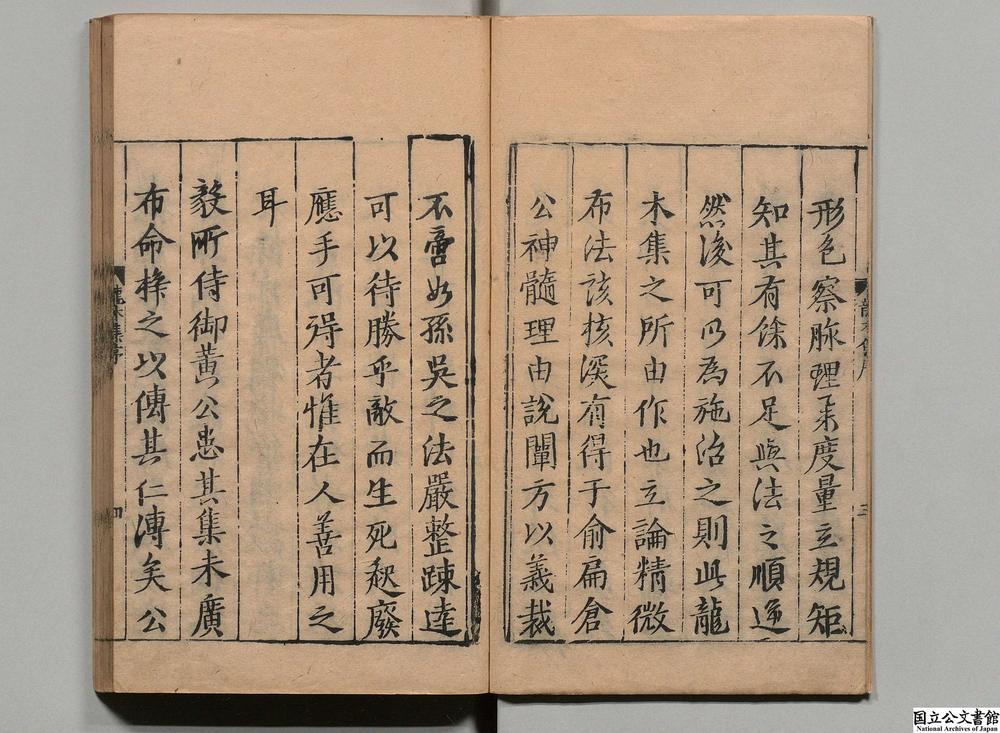 形色察脉理乗度量立規矩
知其有餘不足與法之順逆
然後可以為施治之則此龍
木集之所由作也立論精微
布法該核深有得于俞扁倉
公神髓理由說闡方以義裁
三
不啻如孫吳之法嚴整踈達
可以待勝乎敵而生死起廢
應手可得者惟在人善用之
耳
毅所侍御黄公患其集未廣
布命梓之以傳其仁溥矣公
四
国立公文書館
National Archives of Japan